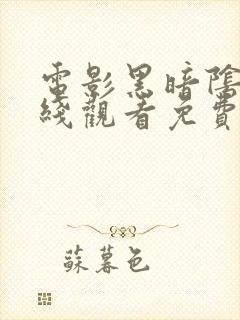 電影黑暗陰
綫觀看免費
蘇暮色